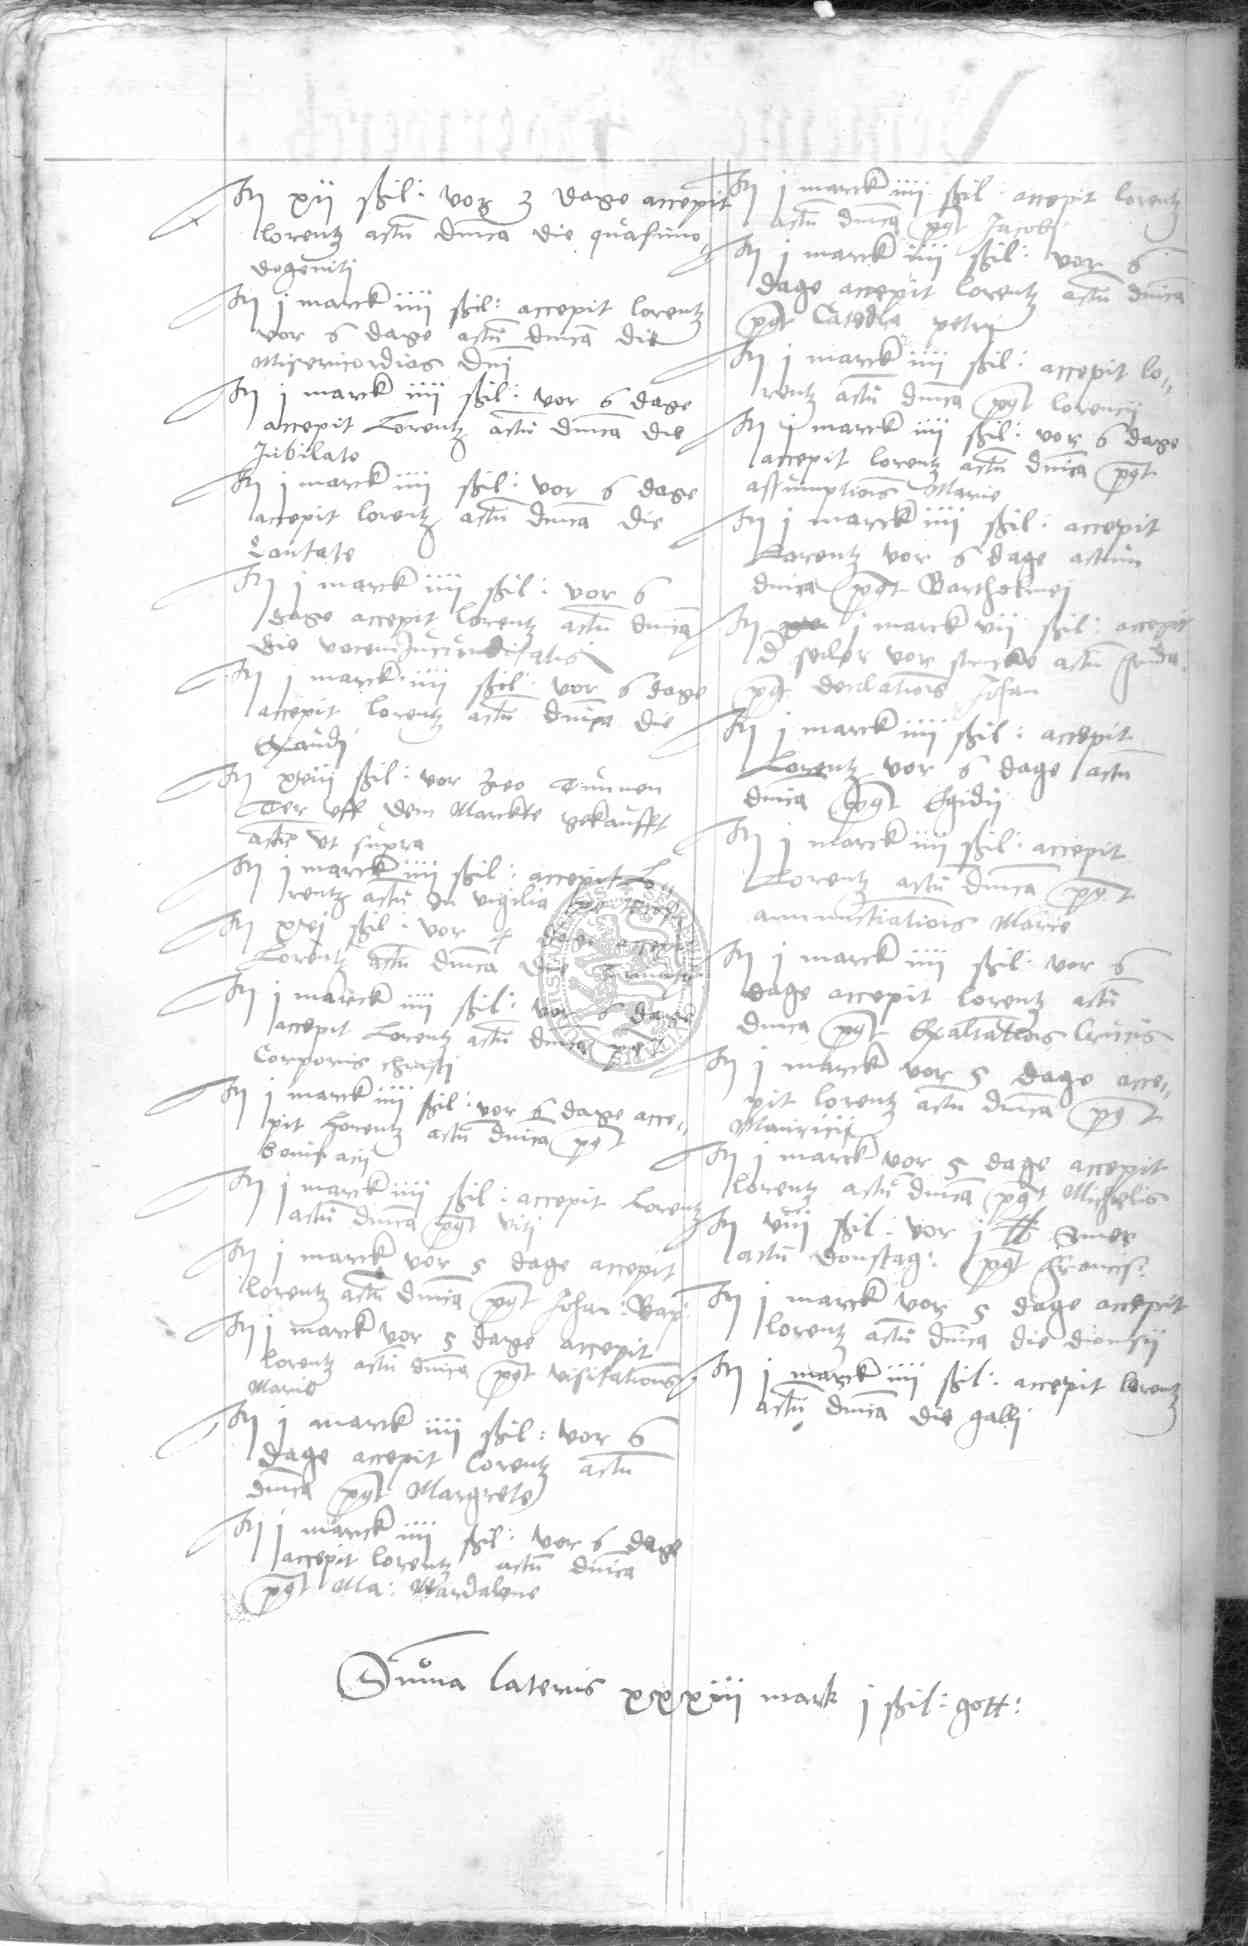 It xii ßil: vor 3 dage accepit
lorentz actu dnica die quasimo
dogeniti
It j marck iiii ßil: accepit lorentz
vor 6 dage actu dnica die
Misericordias dni
It j marck iiii ßil: vor 6 dage
accepit Lorentz actu dnica die
Jubilate
It j marck iiii ßil: vor 6 dage
accepit lorentz actu dnica die
Cantate
It j marck iiii ßil: vor 6
dage accepit lorentz actu dnica
die vocem Jucunditatis
It j marck iiii ßil: vor 6 dage
accepit lorentz actu dnica die
Exaudi
It xviii ßil: vor tunnen
Ter uff dem Marckte gekaufft
actu ut supra
It j marck iiii ßil: accepit Lo
rentz actu In vigilia
It xvi ßil: vor 4 dage accepit
Lorentz actu dnica die
It j marck iiii ßil: vor 6 dage
accepit Lorentz actu dnica pt
Corporis christi
It j marck iiii ßil: vor 6 dage acce
pit Lorentz actu dnica pt
bonifacij
It j marck iiii ßil: accepit Lorentz
actu dnica pt viti
It j marck vor 5 dage accepit
lorentz actu dnica pt Johan: Bap:
It j marck vor 5 dage accepit
lorentz actu dnica pt visitationis
Marie
It j marck iiii ßil: vor 6
dage accepit lorentz actu
dnica pt Margrete
It j marck iiii ßil: vor 6 dage
accepit lorentz actu dnica
pt Ma: Mardalene
It j marck iiii ßil: accepit lorentz
actu dnica pt Jacobi
It j marck iiii ßil: vor 6
dage accepit lorentz actu dnica
pt Catedra petri
It j marck iiii ßil: accepit lo
rentz actu dnica pt lorencij
It j marck iiii ßil: vor 6 dage
accepit lorentz actu dnica pt
assumptiois Marie
It j marck iiii ßil: accepit
Lorentz vor 6 dage actum
dnica pt Bartholomei
It j marck vii ßil: accepit
d seiler vor stricke actu
pt decolatiois Johan
It j marck iiii ßil: accepit
Lorentz vor 6 dage actu
dnica pt Egidij
It j marck iiii ßil: accepit
Lorentz actu dnica pt
annunctiatiois Marie
It j marck iiii ßil: vor 6
dage accepit lorentz actu
dnica pt Exaltatiois Crucis
It j marck vor 5 dage acce
pit lorentz actu dnica pt
Mauricij
It j marck vor 5 dage accepit
lorentz actu dnica pt Michelis
It viii ßil: vor j smer
actu donstag: pt Francis:
It j marck vor 5 dage accepit
lorentz actu dnica die dionisij
It j marck iiii ßil: accepit lorentz
actu dnica die galli
Suma lateris xxxiii mark j ßil: gott: